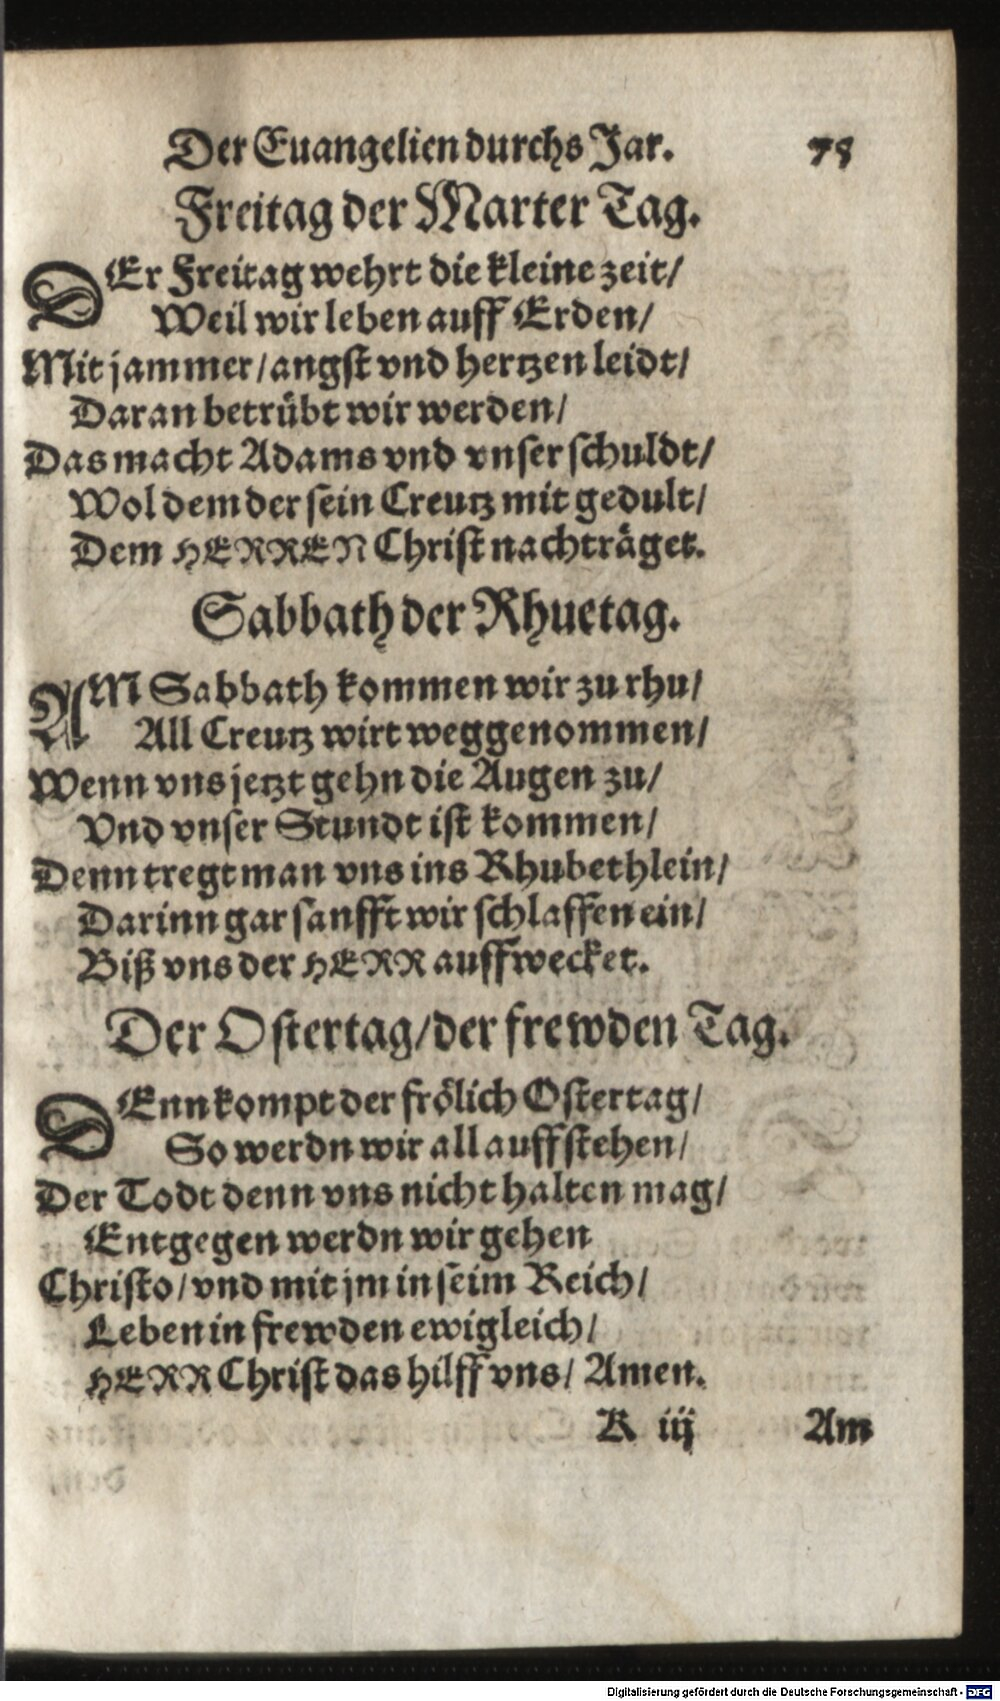 Der Euangelien durchs Jar. 78
Freitag der Marter Tag.
DEr Freitag wehrt die kleine zeit/
Weil wir leben auff Erden/
Mit jammer/angst vnd hertzen leidt/
Daran betrübt wir werden/
Das macht Adams vnd vnser schuldt/
Wol dem der sein Creutz mit gedult/
Dem HERREN Christ nachträget.
Sabbath der Rhuetag.
AM Sabbath kommen wir zu rhu/
All Creutz wirt weggenommen/
Wenn vns jetzt gehn die Augen zu/
Vnd vnser Stundt ist kommen/
Denn tregt man vns ins Rhubethlein/
Darinn gar sanfft wir schlaffen ein/
Biß vns der HERR auffwecket.
Der Ostertag/der frewden Tag.
DEnn kompt der frölich Ostertag/
So werdn wir all auffstehen/
Der Todt denn vns nicht halten mag/
Entgegen werdn wir gehen
Christo/vnd mit jm in seim Reich/
Leben in frewden ewigleich/
HERR Christ das hilff vns/ Amen.
K iij Am
Digitalisierung gefördert durch die Deutsche Forschungsgemeinschaft - DFG